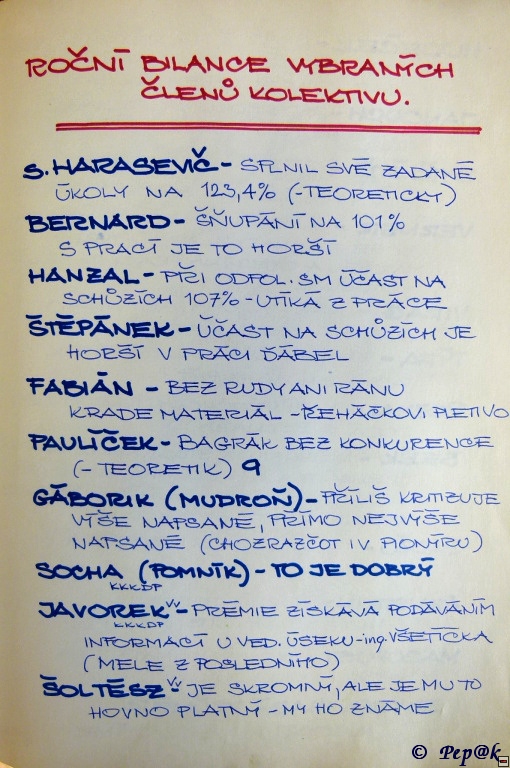 ROČNÍ BILANCE VYBRANÝCH
ČLENŮ KOLEKTIVU.
S. HARASEVIČ - SPLNIL SVÉ ZADANÉ
ÚKOLY NA 123,4% (-TEORETICKY)
BERNARD - ŠŇUPÁNÍ NA 101%
S PRACÍ JE TO HORŠÍ
HANZAL - PŘI ODPOL. SM ÚČAST NA
SCHŮZÍCH 107% - UTÍKÁ Z PRÁCE
ŠTĚPÁNEK - ÚČAST NA SCHŮZÍCH JE
HORŠÍ V PRÁCI ĎÁBEL
FABIÁN - BEZ RUDY ANI RÁNU
KRADE MATERIÁL - ŘEHÁČKOVI PLETIVO
PAULÍČEK - BAGRÁK BEZ KONKURENCE
(- TEORETIK) 9
GÁBORIK (MUDROŇ) - PŘÍLIŠ KRITIZUJE
VÝŠE NAPSANÉ, PŘÍMO NEJVÝŠE
NAPSANÉ (CHOZRAZČOT I V PIONÝRU)
SOCHA (POMNÍK) - TO JE DOBRÝ
KKKDP
JAVOREK VV - PRÉMIE ZÍSKÁVÁ PODÁVÁNÍM
KKKDP
INFORMACÍ U VED. ÚSEKU - ing. VŠETIČKA
(MELE Z POSLEDNÍHO)
ŠOLTÉSZ VV - JE SKROMNÝ, ALE JE MU TO
HOVNO PLATNÝ - MY HO ZNÁME
© Pep@k